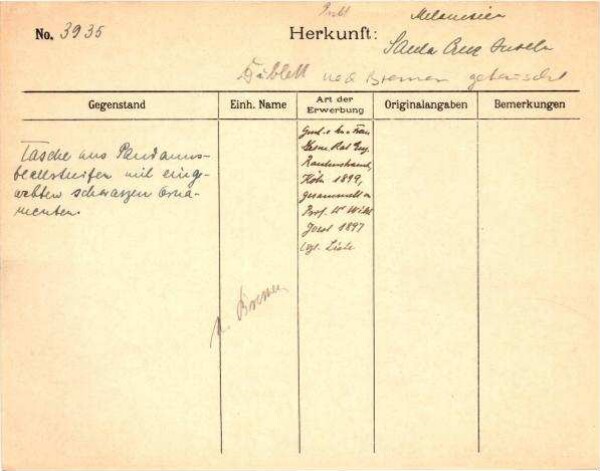 No. 3935
Herkunft:
Melanesien
Santa Cruz Inseln
Dublett nach Bremen getauscht
Gegenstand
Einh. Name
Art der Erwerbung
Originalangaben
Bemerkungen
Tasche aus Pandanus-
blattstreifen mit einge-
webten schwarzen Orna-
menten.
Rautenstrauch,
Köln 1899,
gesammelt v.
Prof. Dr
1897
vgl. Liste
n. Bremen